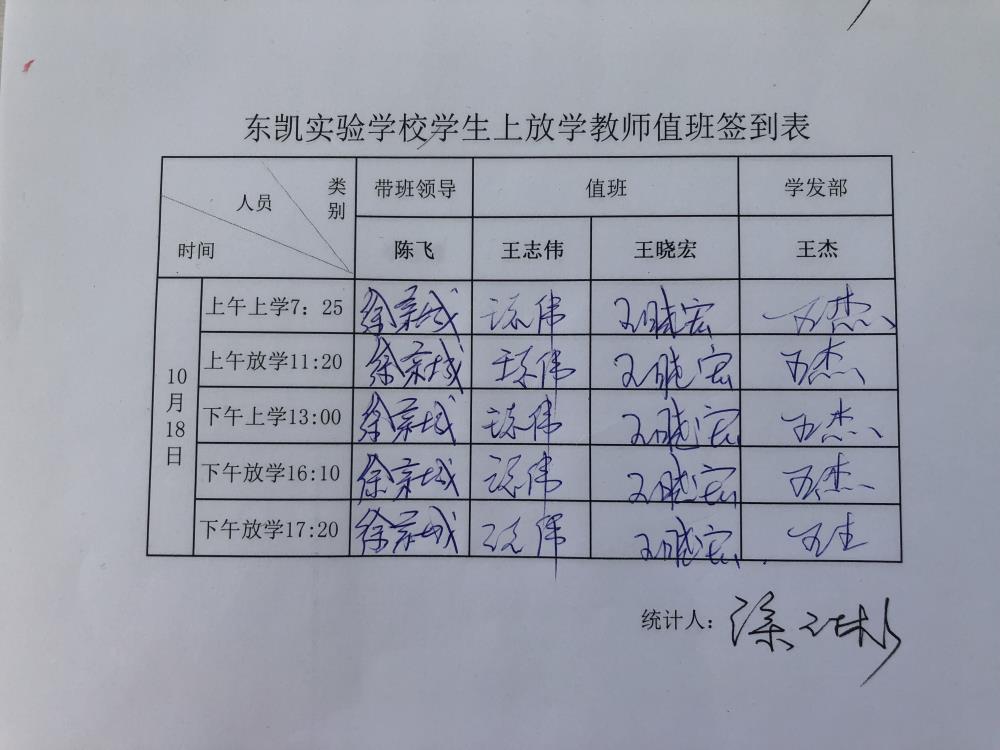 东凯实验学校学生上放学教师值班签到表
类别 带班领导 值班 学发部
人员
时间 陈飞 王志伟 王晓宏 王杰
10月18日
上午上学7：25 徐京城 王志伟 王晓宏 王杰
上午放学11:20 徐京城 王志伟 王晓宏 王杰
下午上学13:00 徐京城 王志伟 王晓宏 王杰
下午放学16:10 徐京城 王志伟 王晓宏 王杰
下午放学17:20 徐京城 王志伟 王晓宏 王杰
统计人：